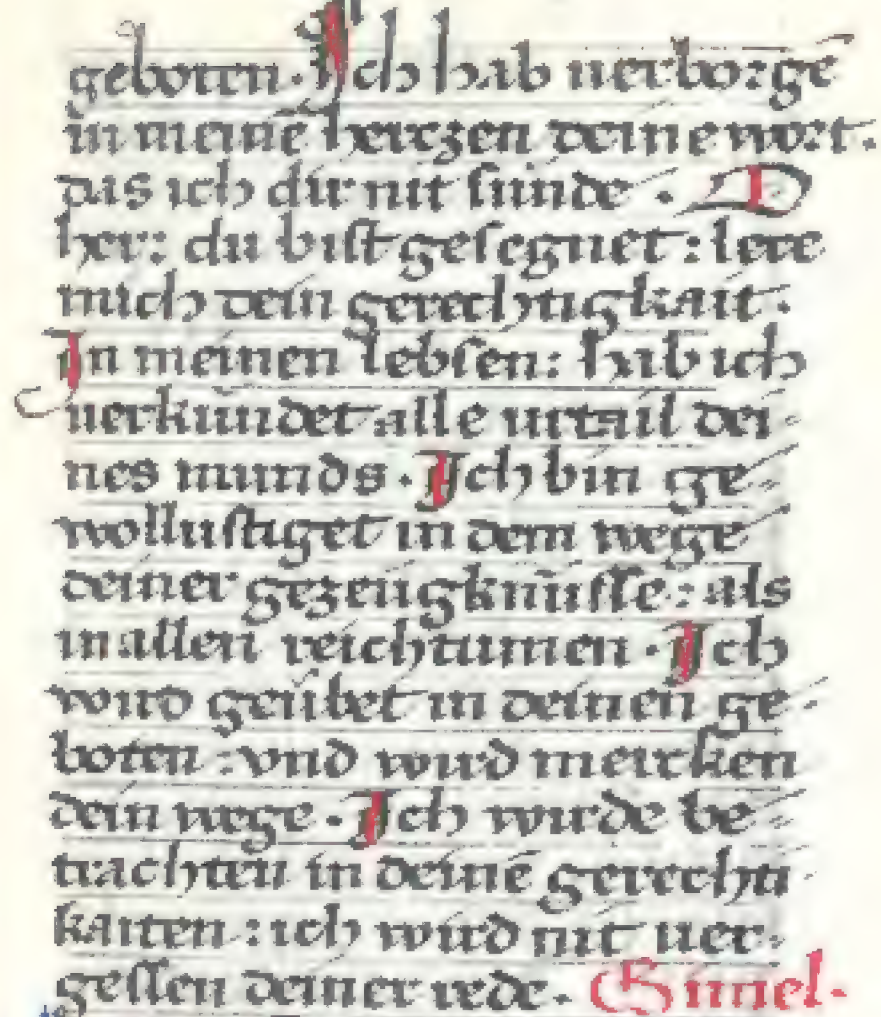 geboten. Ich hab uerborgē
in meinē herczen deine wort.
das ich dir nit sünde. O
her: du bist gesegnet: lere
mich dein gerechtigkait.
In meinen lebsen: hab ich
uerkündet alle urtail dei-
nes munds. Ich bin ge-
wollustiget in dem wege
deiner gezeugknüsse: als
in allen reichtumen. Ich
wird geübet in deinen ge-
boten: vnd wird mercken
dein wege. Ich wirde be-
trachten in deinē gerechti
kaiten: ich wird nit uer-
gessen deiner rede.